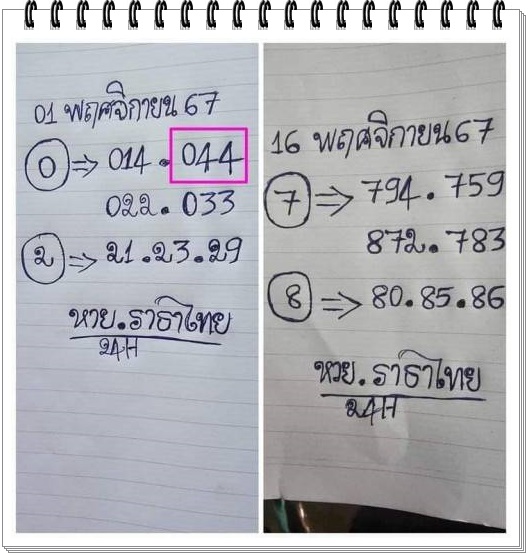 01 พฤศจิกายน 67
0 ⇒ 014 . 044
022 . 033
2 ⇒ 21 . 23 . 29
หวย . ราธาไทย
24H
16 พฤศจิกายน 67
7 ⇒ 794 . 759
872 . 783
8 ⇒ 80 . 85 . 86
หวย . ราธาไทย
24H